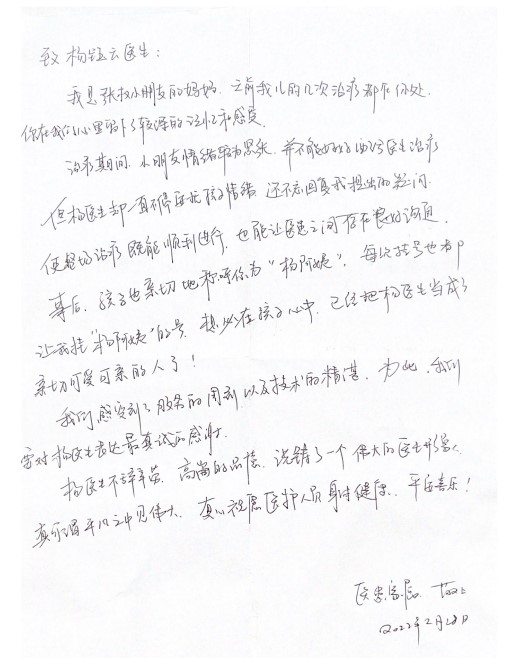 致杨钰云医生：
我是张权小朋友的妈妈，之前我儿的几次治疗都在你处，
你在我们心里留下了较深的记忆和感受。
治疗期间，小朋友情绪较为紧张，并不能好好的配合医生治疗
但杨医生却一直不停安抚孩子情绪，还不忘回复我提出的疑问
使整场治疗既能顺利进行，也能让医患之间存在良好沟通，
事后，孩子也亲切地称呼你为“杨阿姨”，每次挂号也都
让我挂“杨阿姨”的号，想必在孩子心中，已经把杨医生当成了
亲切可爱可亲的人了！
我们感受到了服务的周到，以及技术的精湛，为此，我们
要对杨医生表达最真诚的感谢。
杨医生不辞辛劳，高尚的品德，浇铸了一个伟大的医生形象，
真可谓平凡之中见伟大，真心祝愿医护人员身体健康，平安喜乐！
医患家属
2022年2月28日